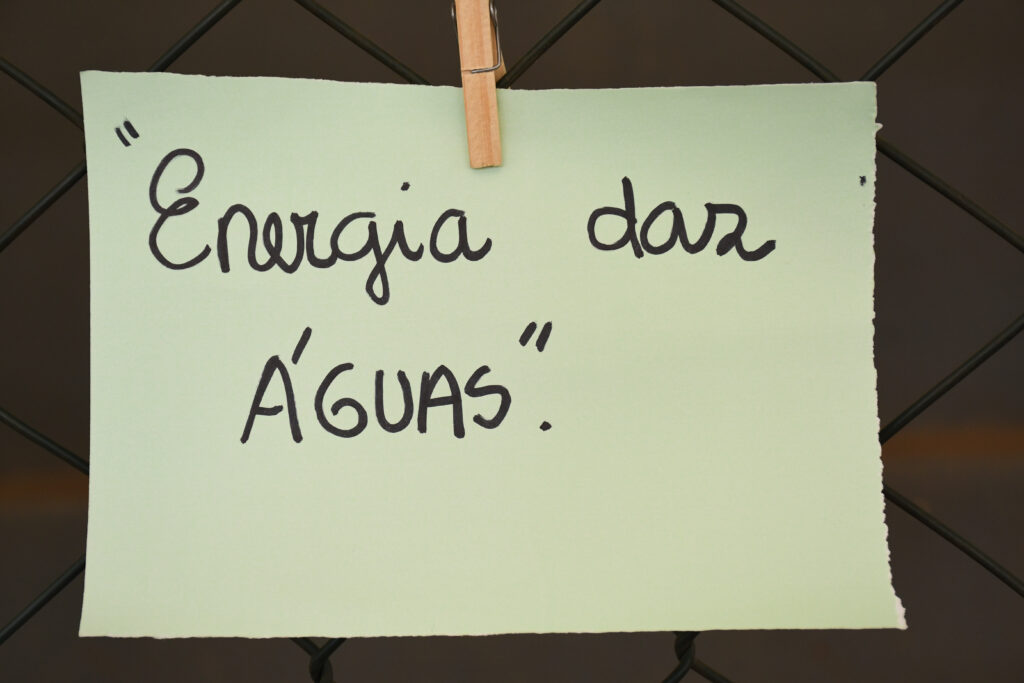 "Energia das
ÁGUAS".